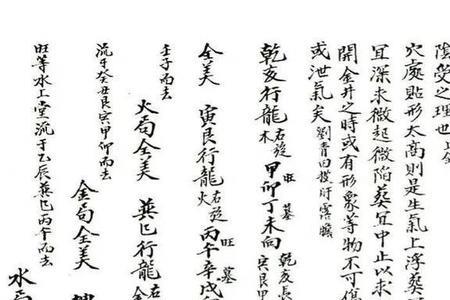 陰受之理世
穴處貼形太高則是生氣上浮葬
宜深未微起微陷葬宜中止以求
開金井之時或有形象等物不可傷
或泄氣矣 劉青田披肝露膽
乾亥行龍 木右旋 甲卯丁未向 旺 墓 乾亥長 寅艮甲
全美 寅艮行龍 火右旋 丙午辛戌 旺 墓
壬子而去
火局全美 巽巳行龍 金右
流于癸丑艮寅甲卯而去
金局全美
旺等水上堂流于乙辰巽巳丙午而去
水局